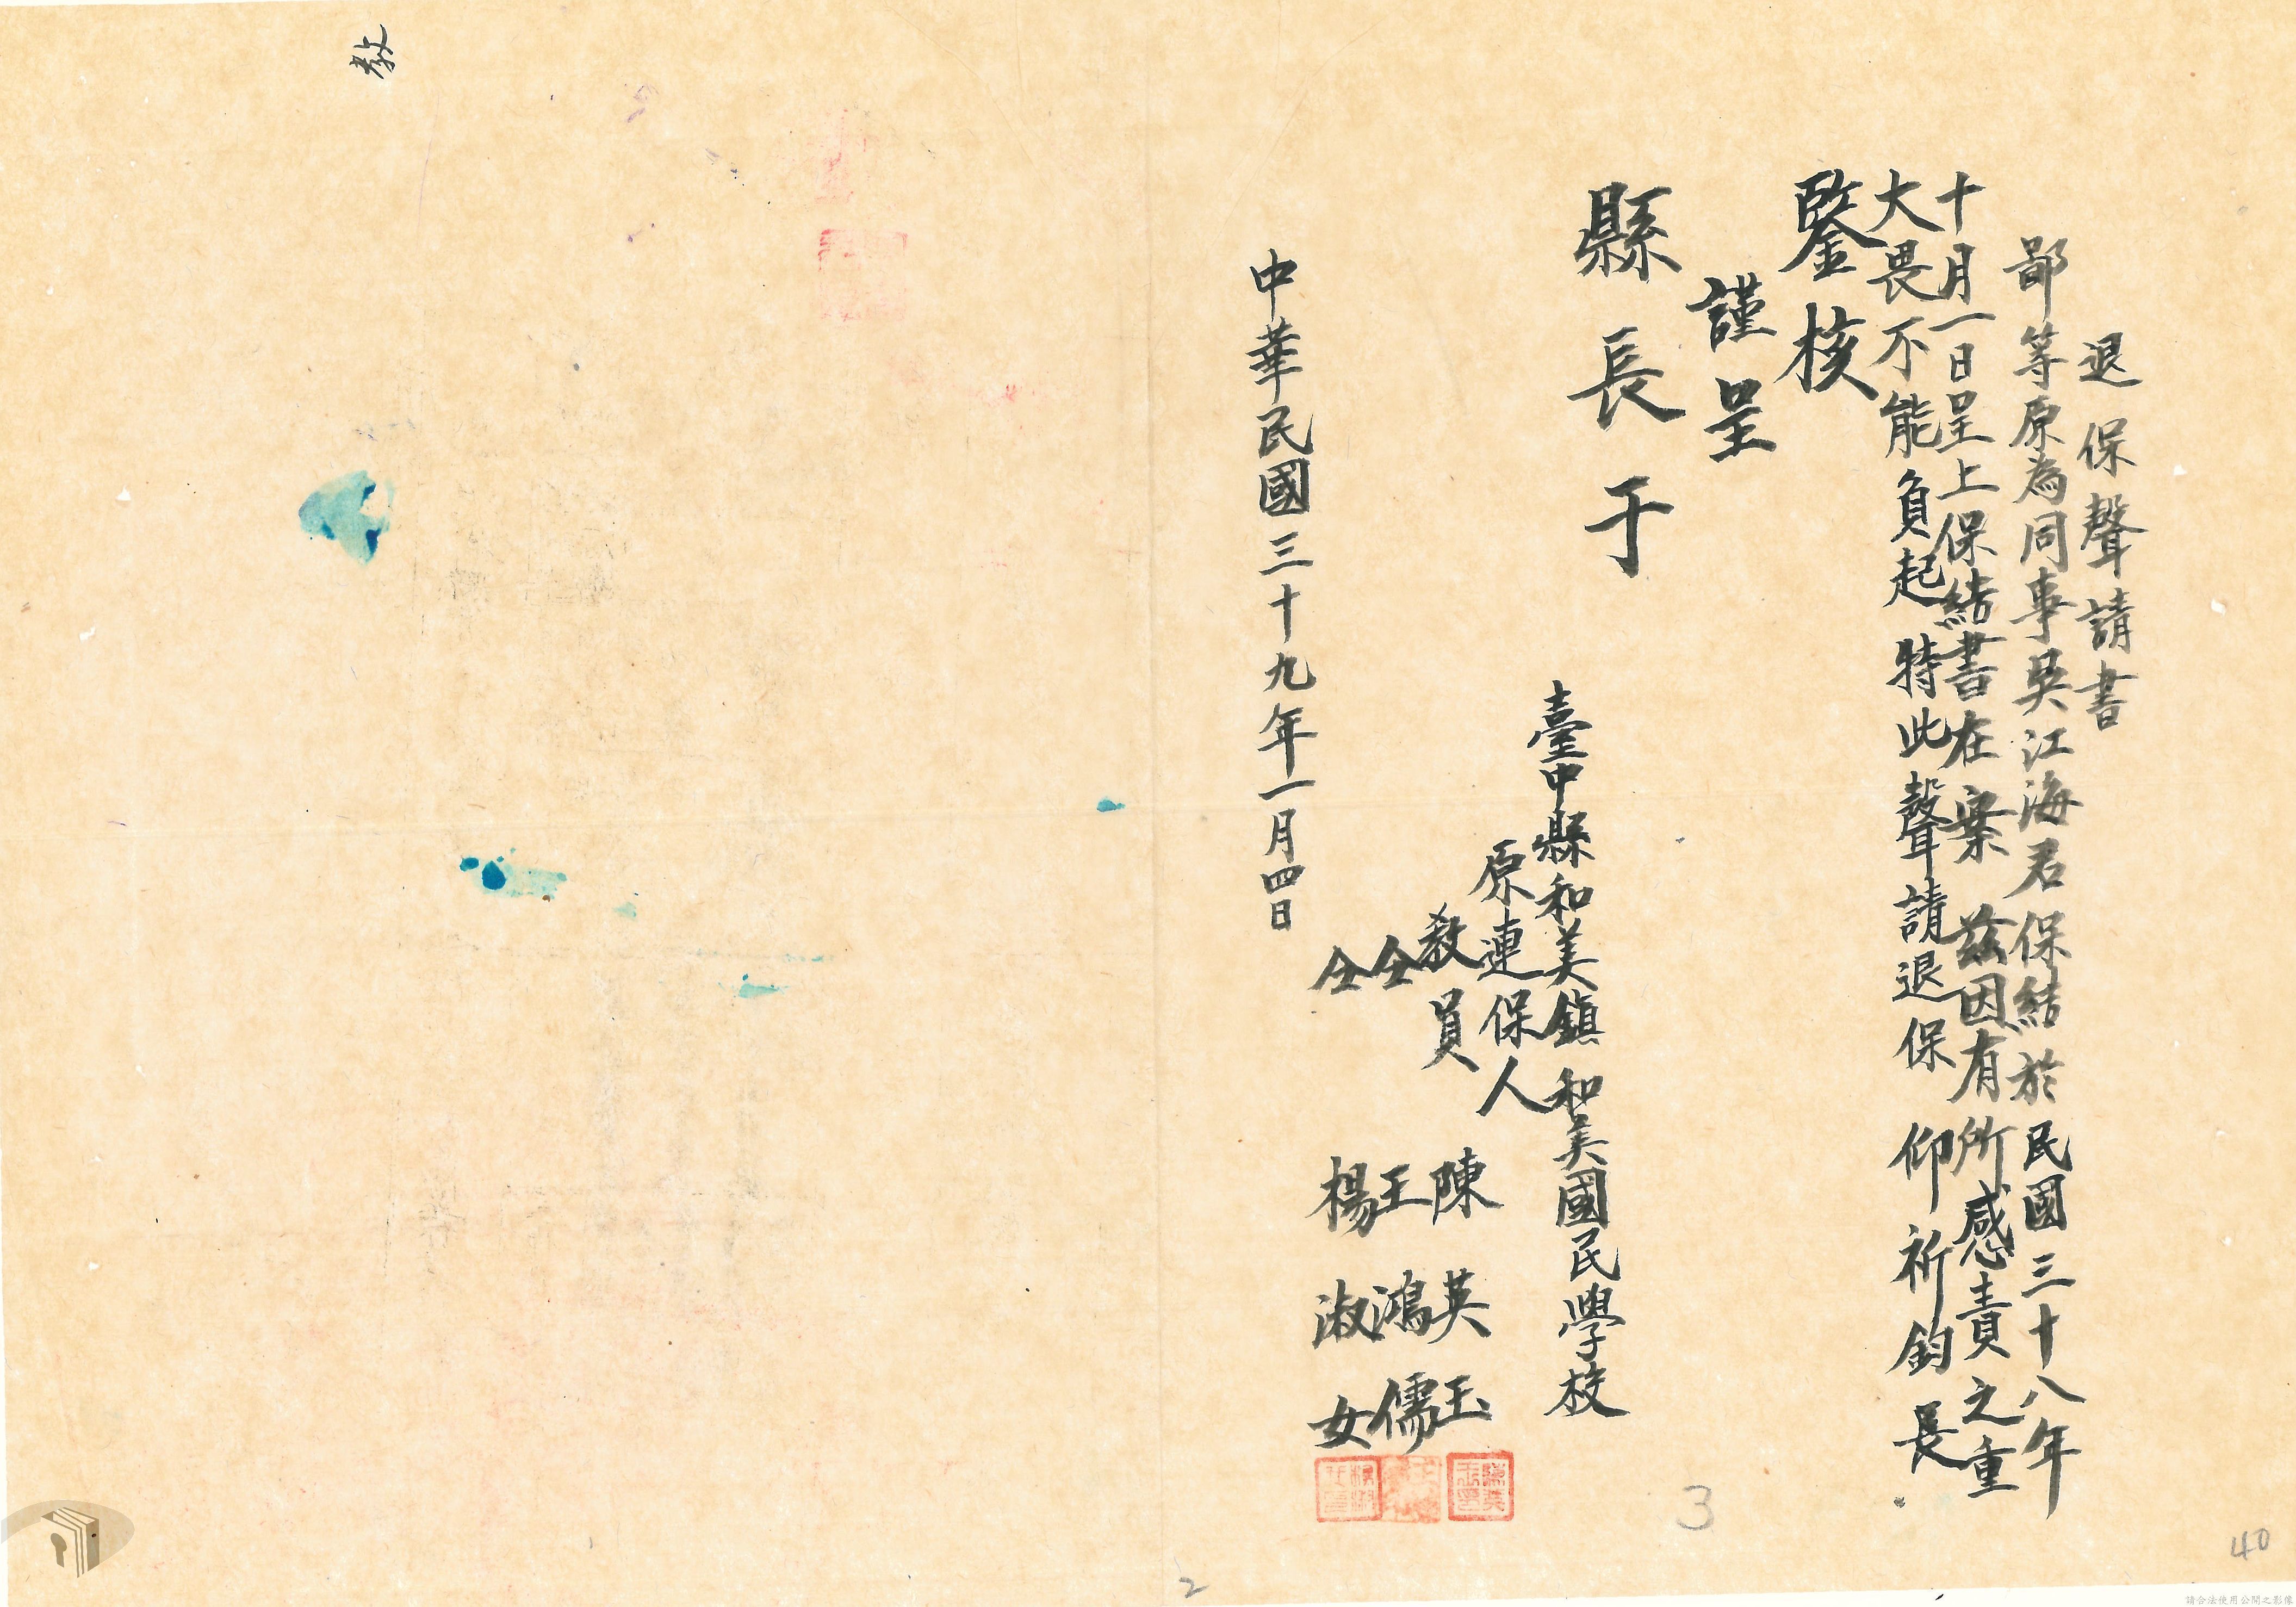 退保聲請書
鄙等原為同事吳江海君保結於民國三十八年
十月一日呈上保結書在案茲因有所感責之重
大畏不能負起特此聲請退保仰祈鈞長
鑒核
謹呈
縣長于
臺中縣和美鎮和美國民學校
原連保人
教員陳英玉
仝王鴻儒
仝楊淑女
中華民國三十九年一月四日
教
3
2
40
請合法使用公開之影像